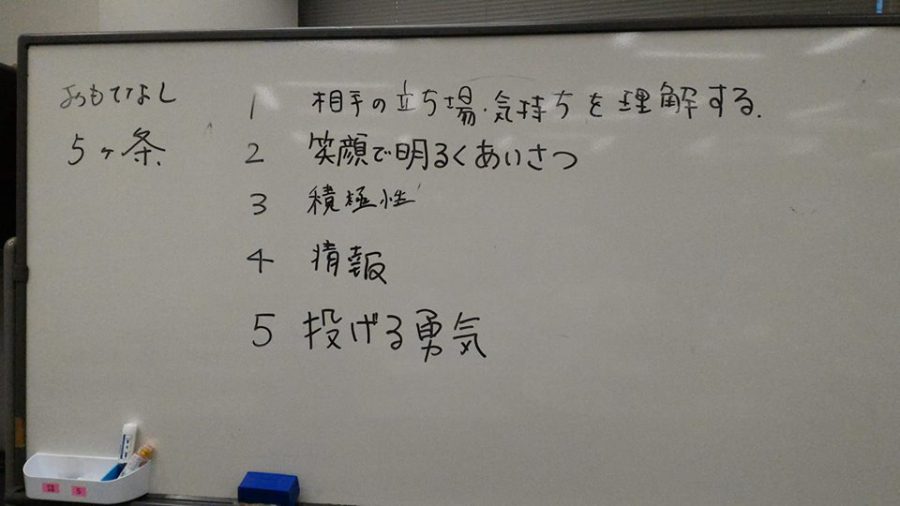 おもてなし
5ヶ条.
1 相手の立ち場・気持ちを理解する.
2 笑顔で明るくあいさつ
3 積極性
4 情報
5 投げる勇気